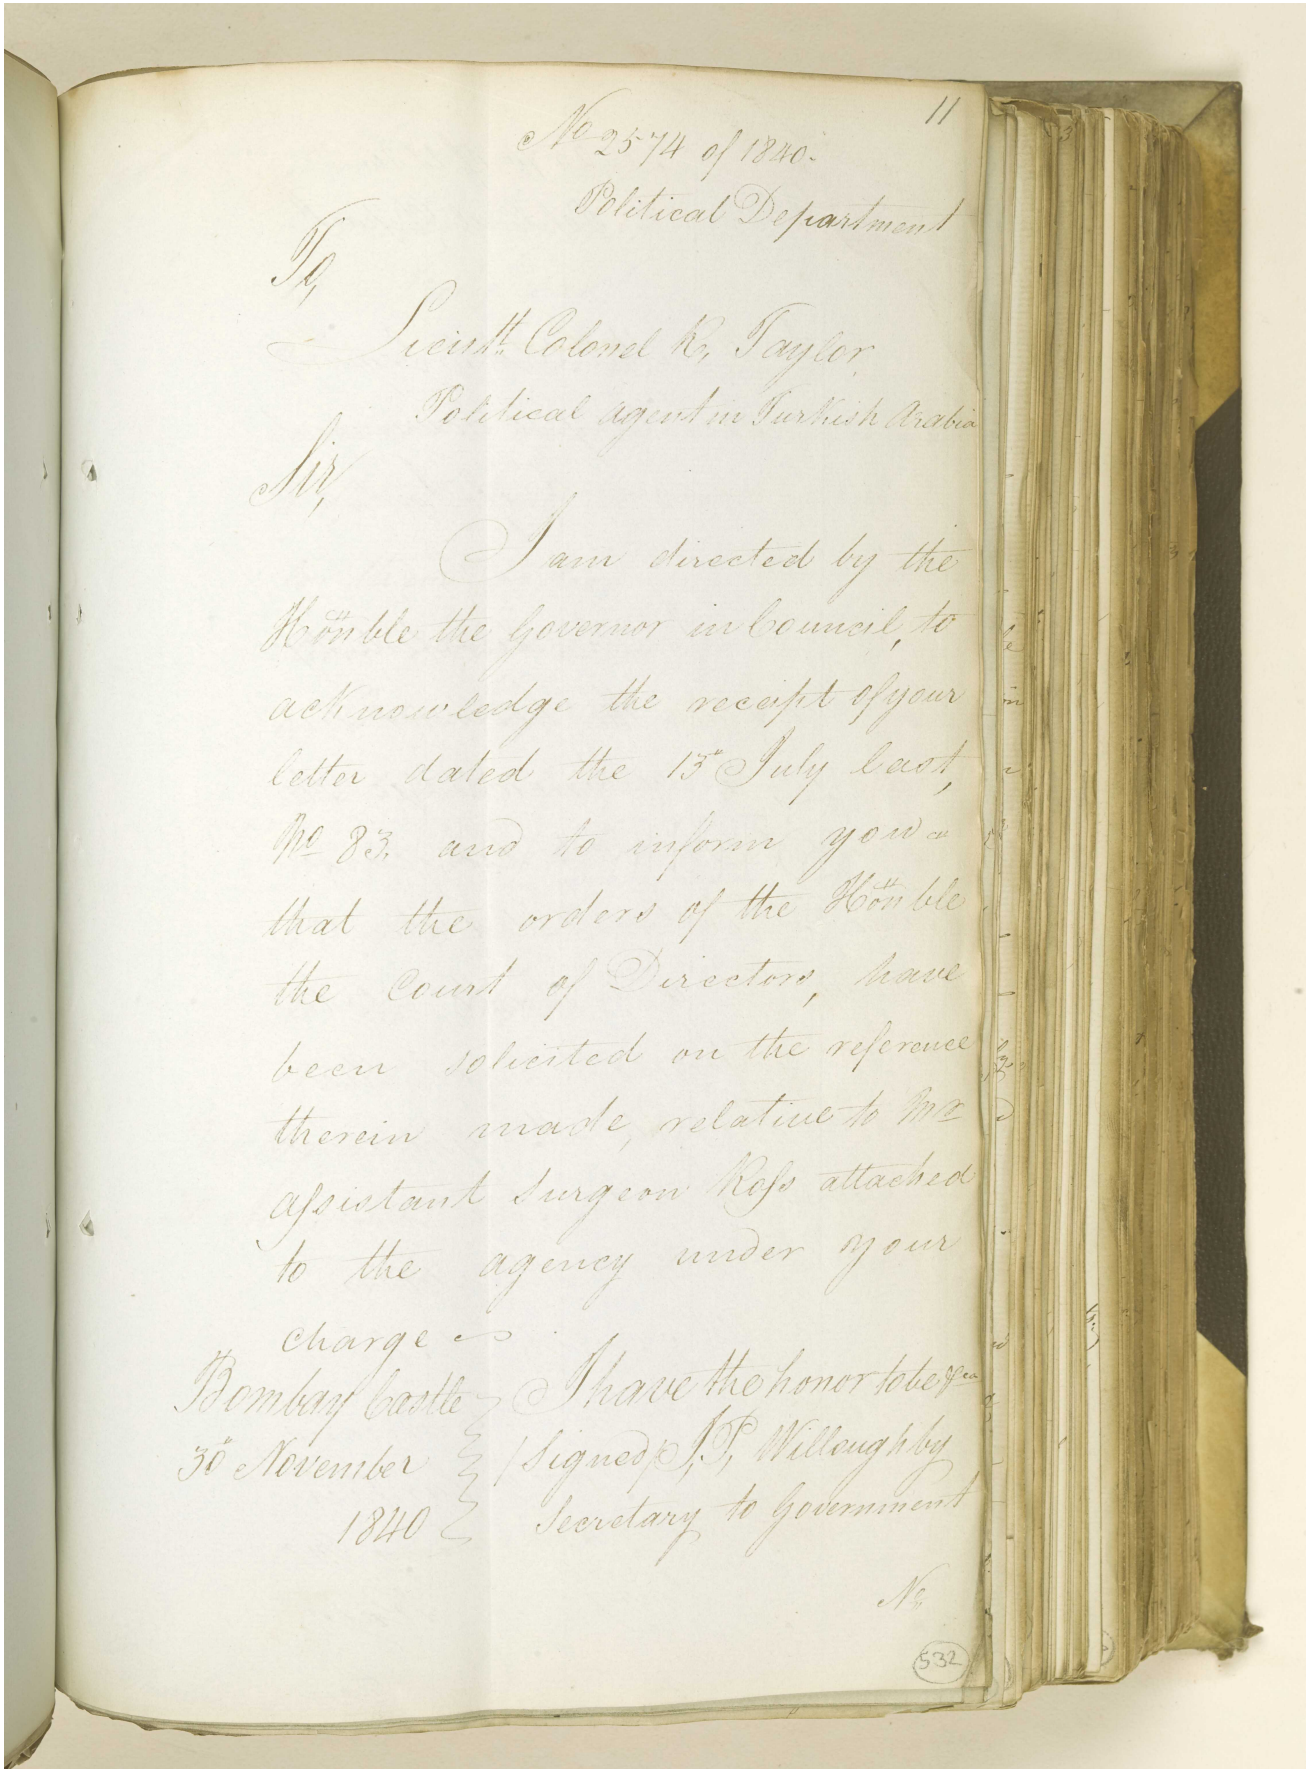 11
No 2574 of 1840.
Political Department
To,
Lieutt. Colonel R, Taylor,
Political agent in Turkish Arabia
Sir,
I am directed by the
Honble the Governor in Council, to
acknowledge the receipt of your
letter dated the 15 July last,
No 83, and to inform you
that the orders of the Honble
the Court of Directors, have
been solicited on the reference
therein made, relative to Mr
assistant Surgeon Ross attached
to the agency under your
charge
Bombay Castle
30 November
1840
I have the honor to be &ca
(Signed) J, P, Willoughby
Secretary to Government
No
532